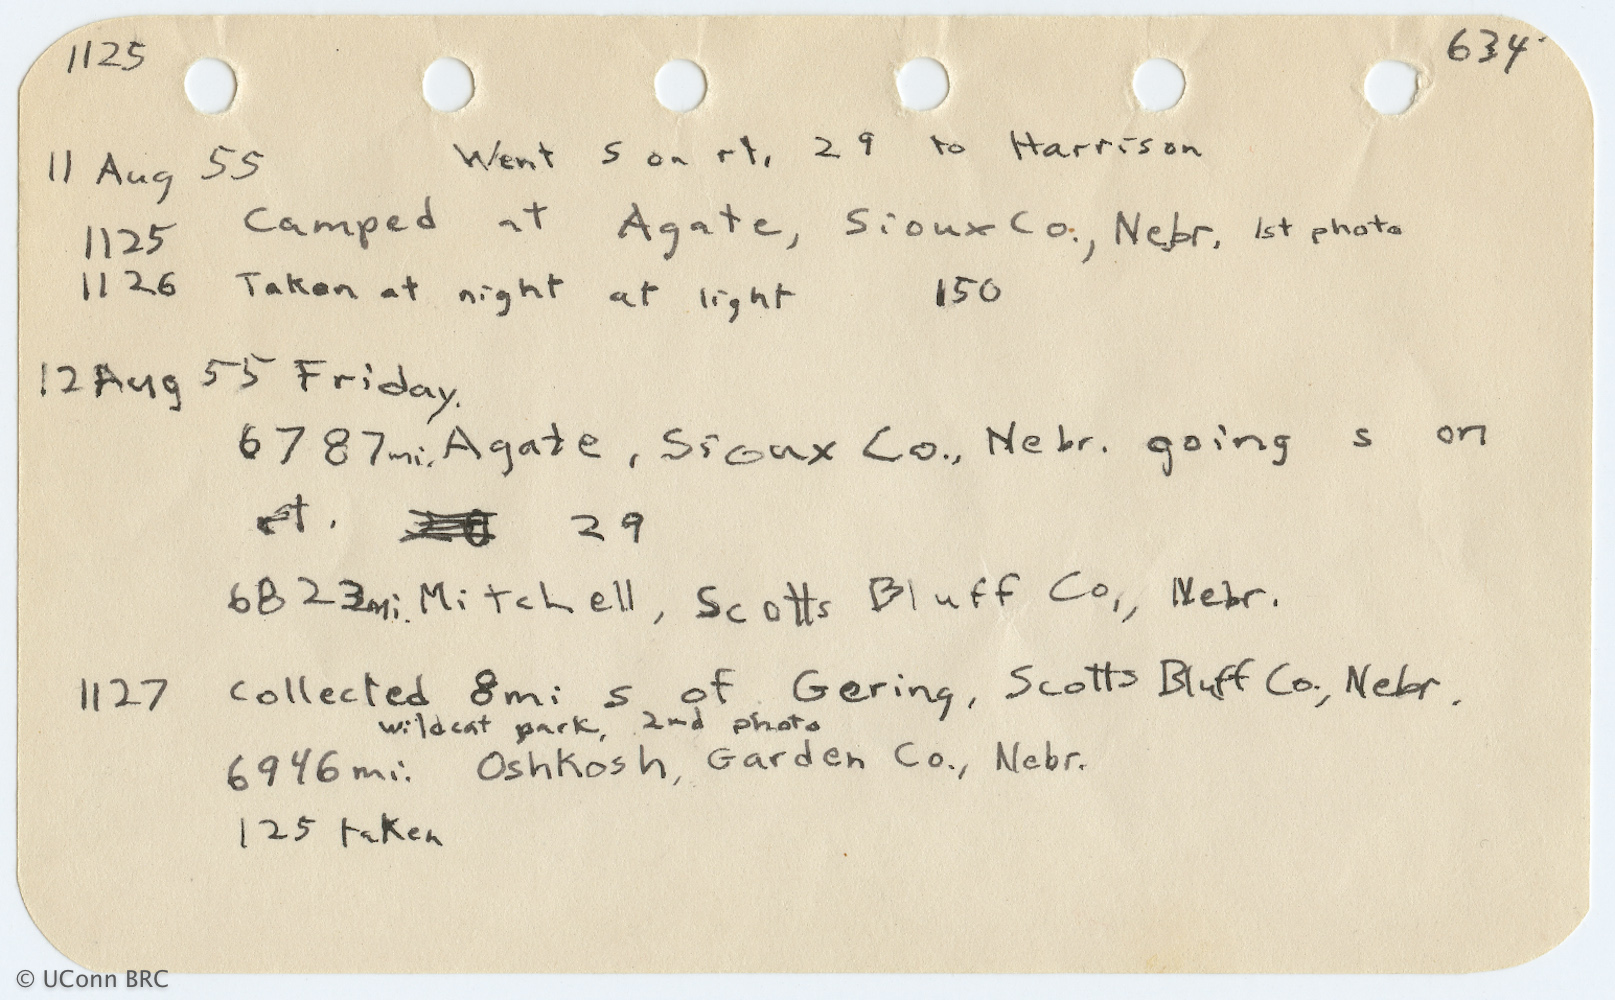 1125 634
11 Aug 55 Went S on rt. 29 to Harrison
1125 Camped at Agate, Sioux Co., Nebr. 1st photo
1126 Taken at night at light 150
12 Aug 55 Friday.
6787 mi. Agate, Sioux Co., Nebr. going s on
rt. 29
6823 mi. Mitchell, Scotts Bluff Co., Nebr.
1127 Collected 8 mi s of Gering, Scotts Bluff Co., Nebr.
wildcat park, 2nd photo
6946 mi. Oshkosh, Garden Co., Nebr.
125 taken
© UConn BRC